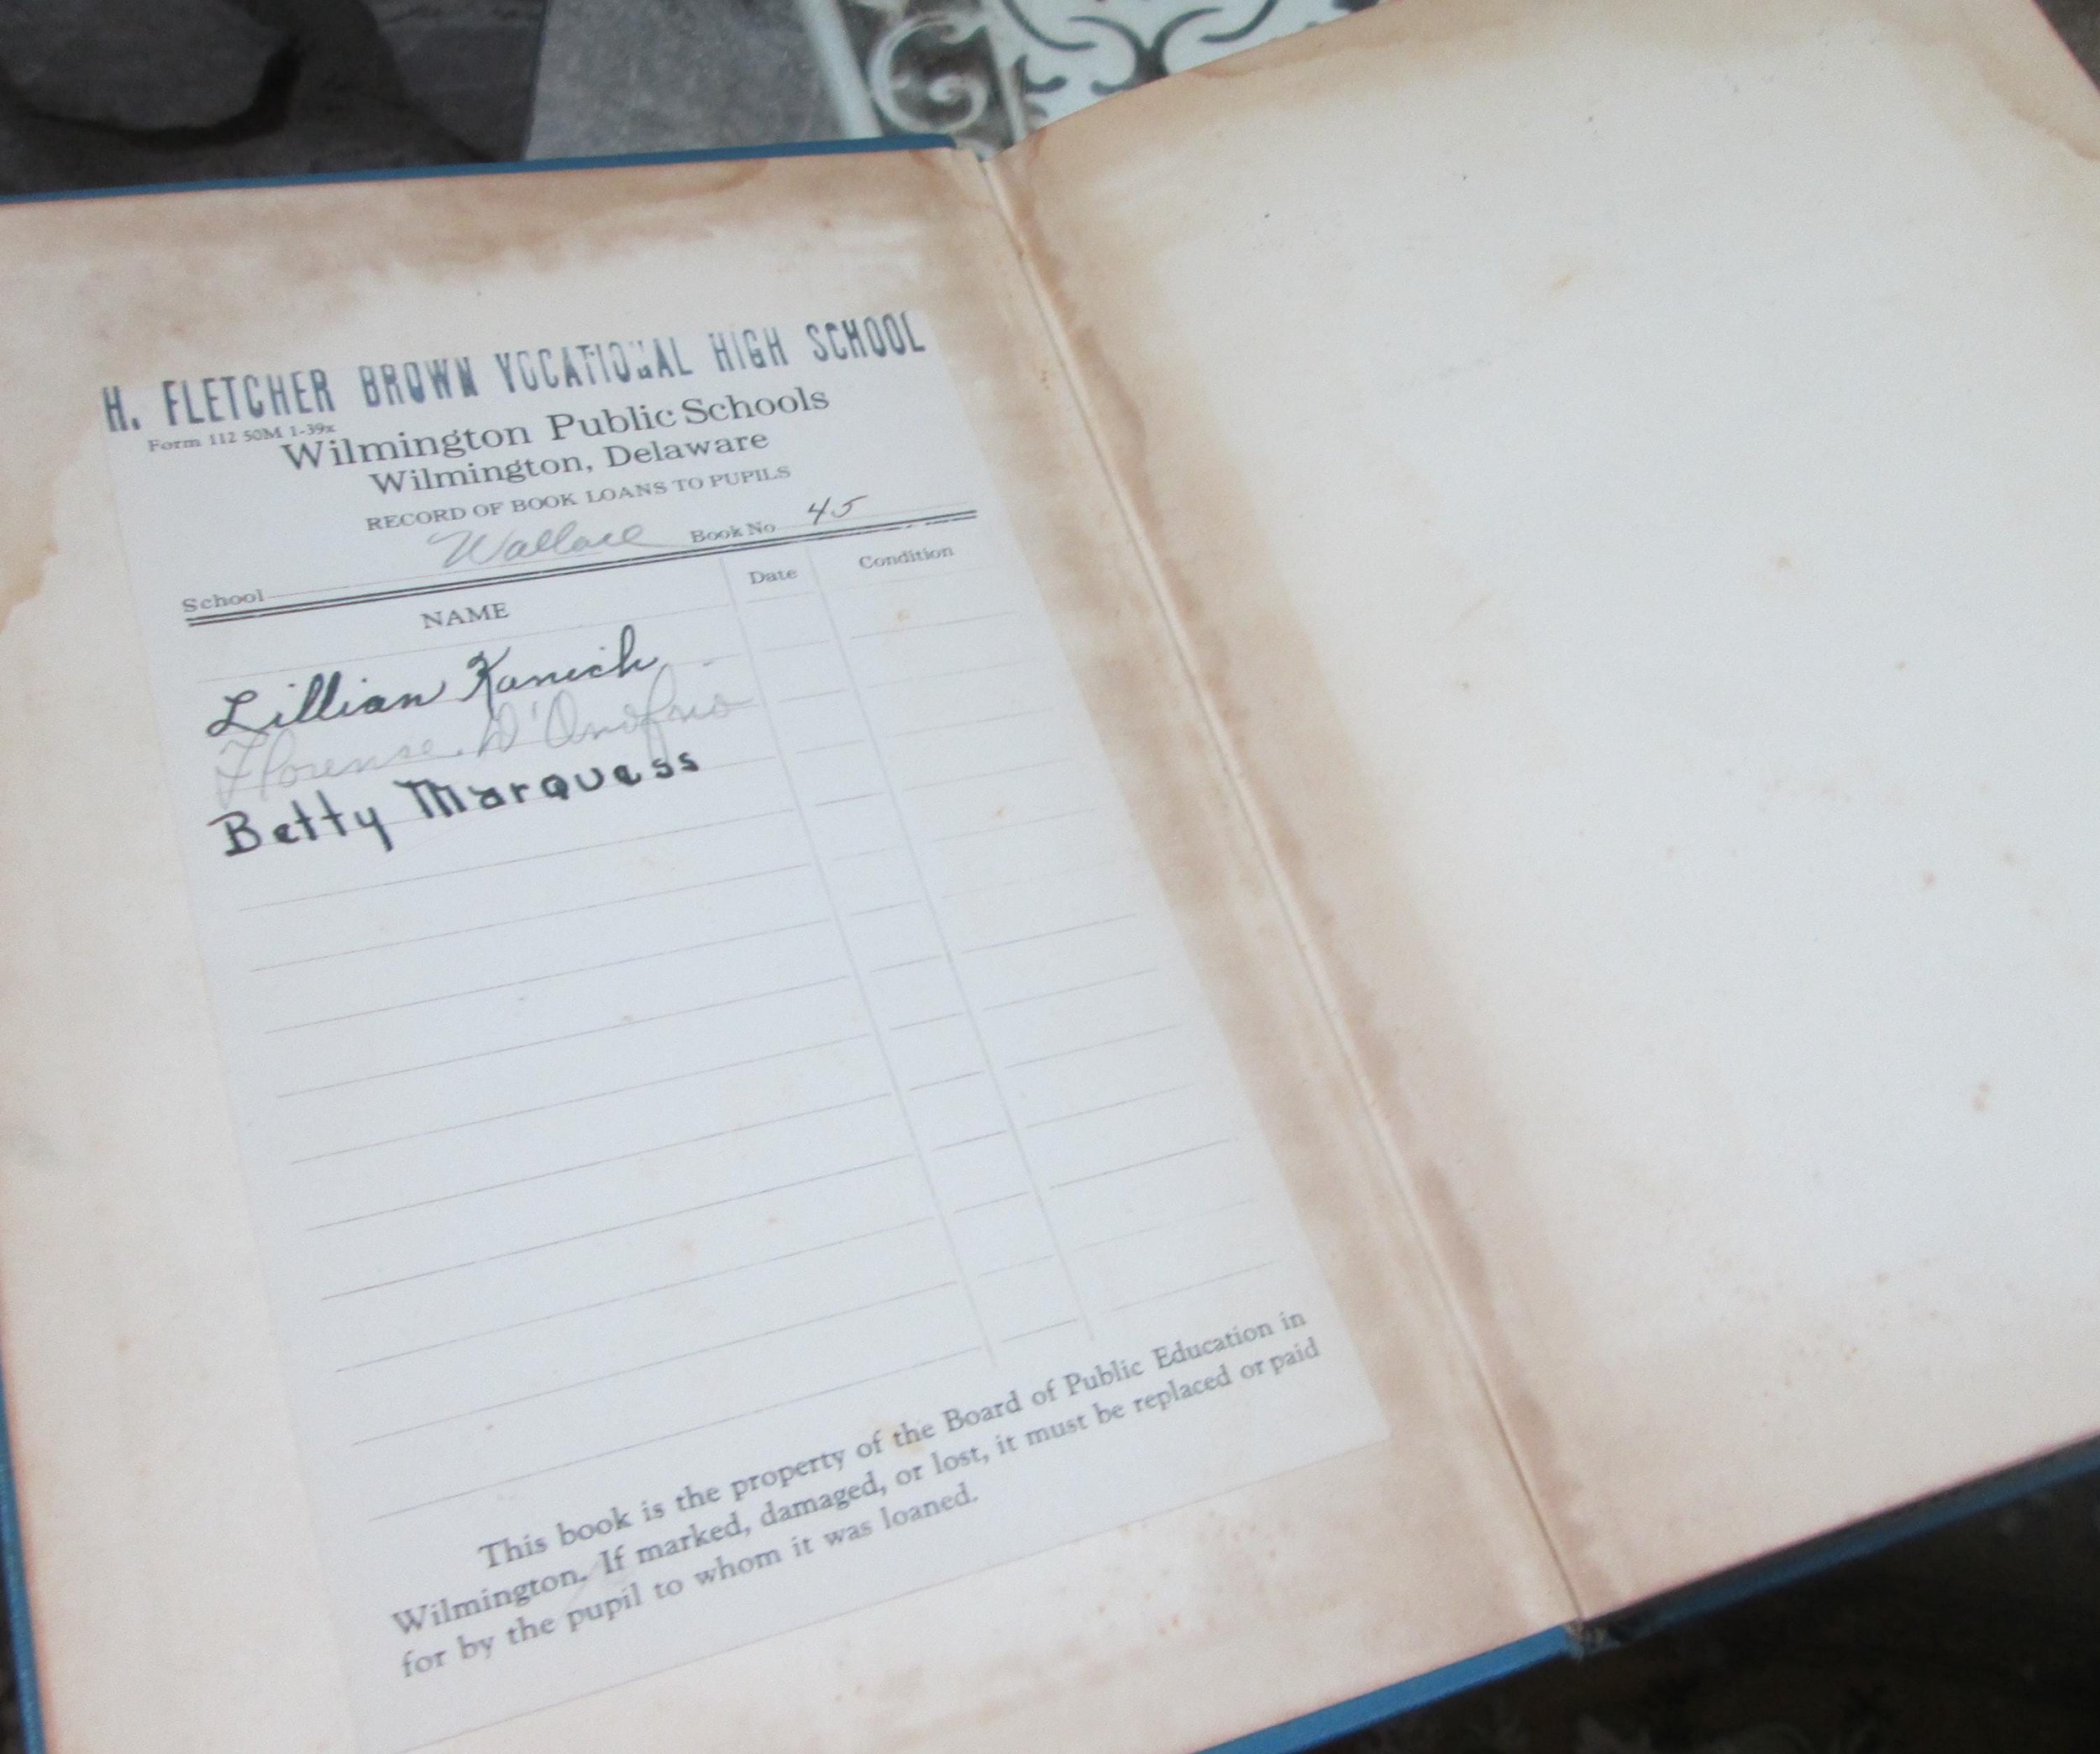 H. FLETCHER BROWN VOCATIONAL HIGH SCHOOL
Form 112 50M 1-39x
Wilmington Public Schools
Wilmington, Delaware
RECORD OF BOOK LOANS TO PUPILS
School Wallace Book No 45
NAME Date Condition
Lillian Kanich
Florence D'Onofrio
Betty Marquess
This book is the property of the Board of Public Education in
Wilmington. If marked, damaged, or lost, it must be replaced or paid
for by the pupil to whom it was loaned.